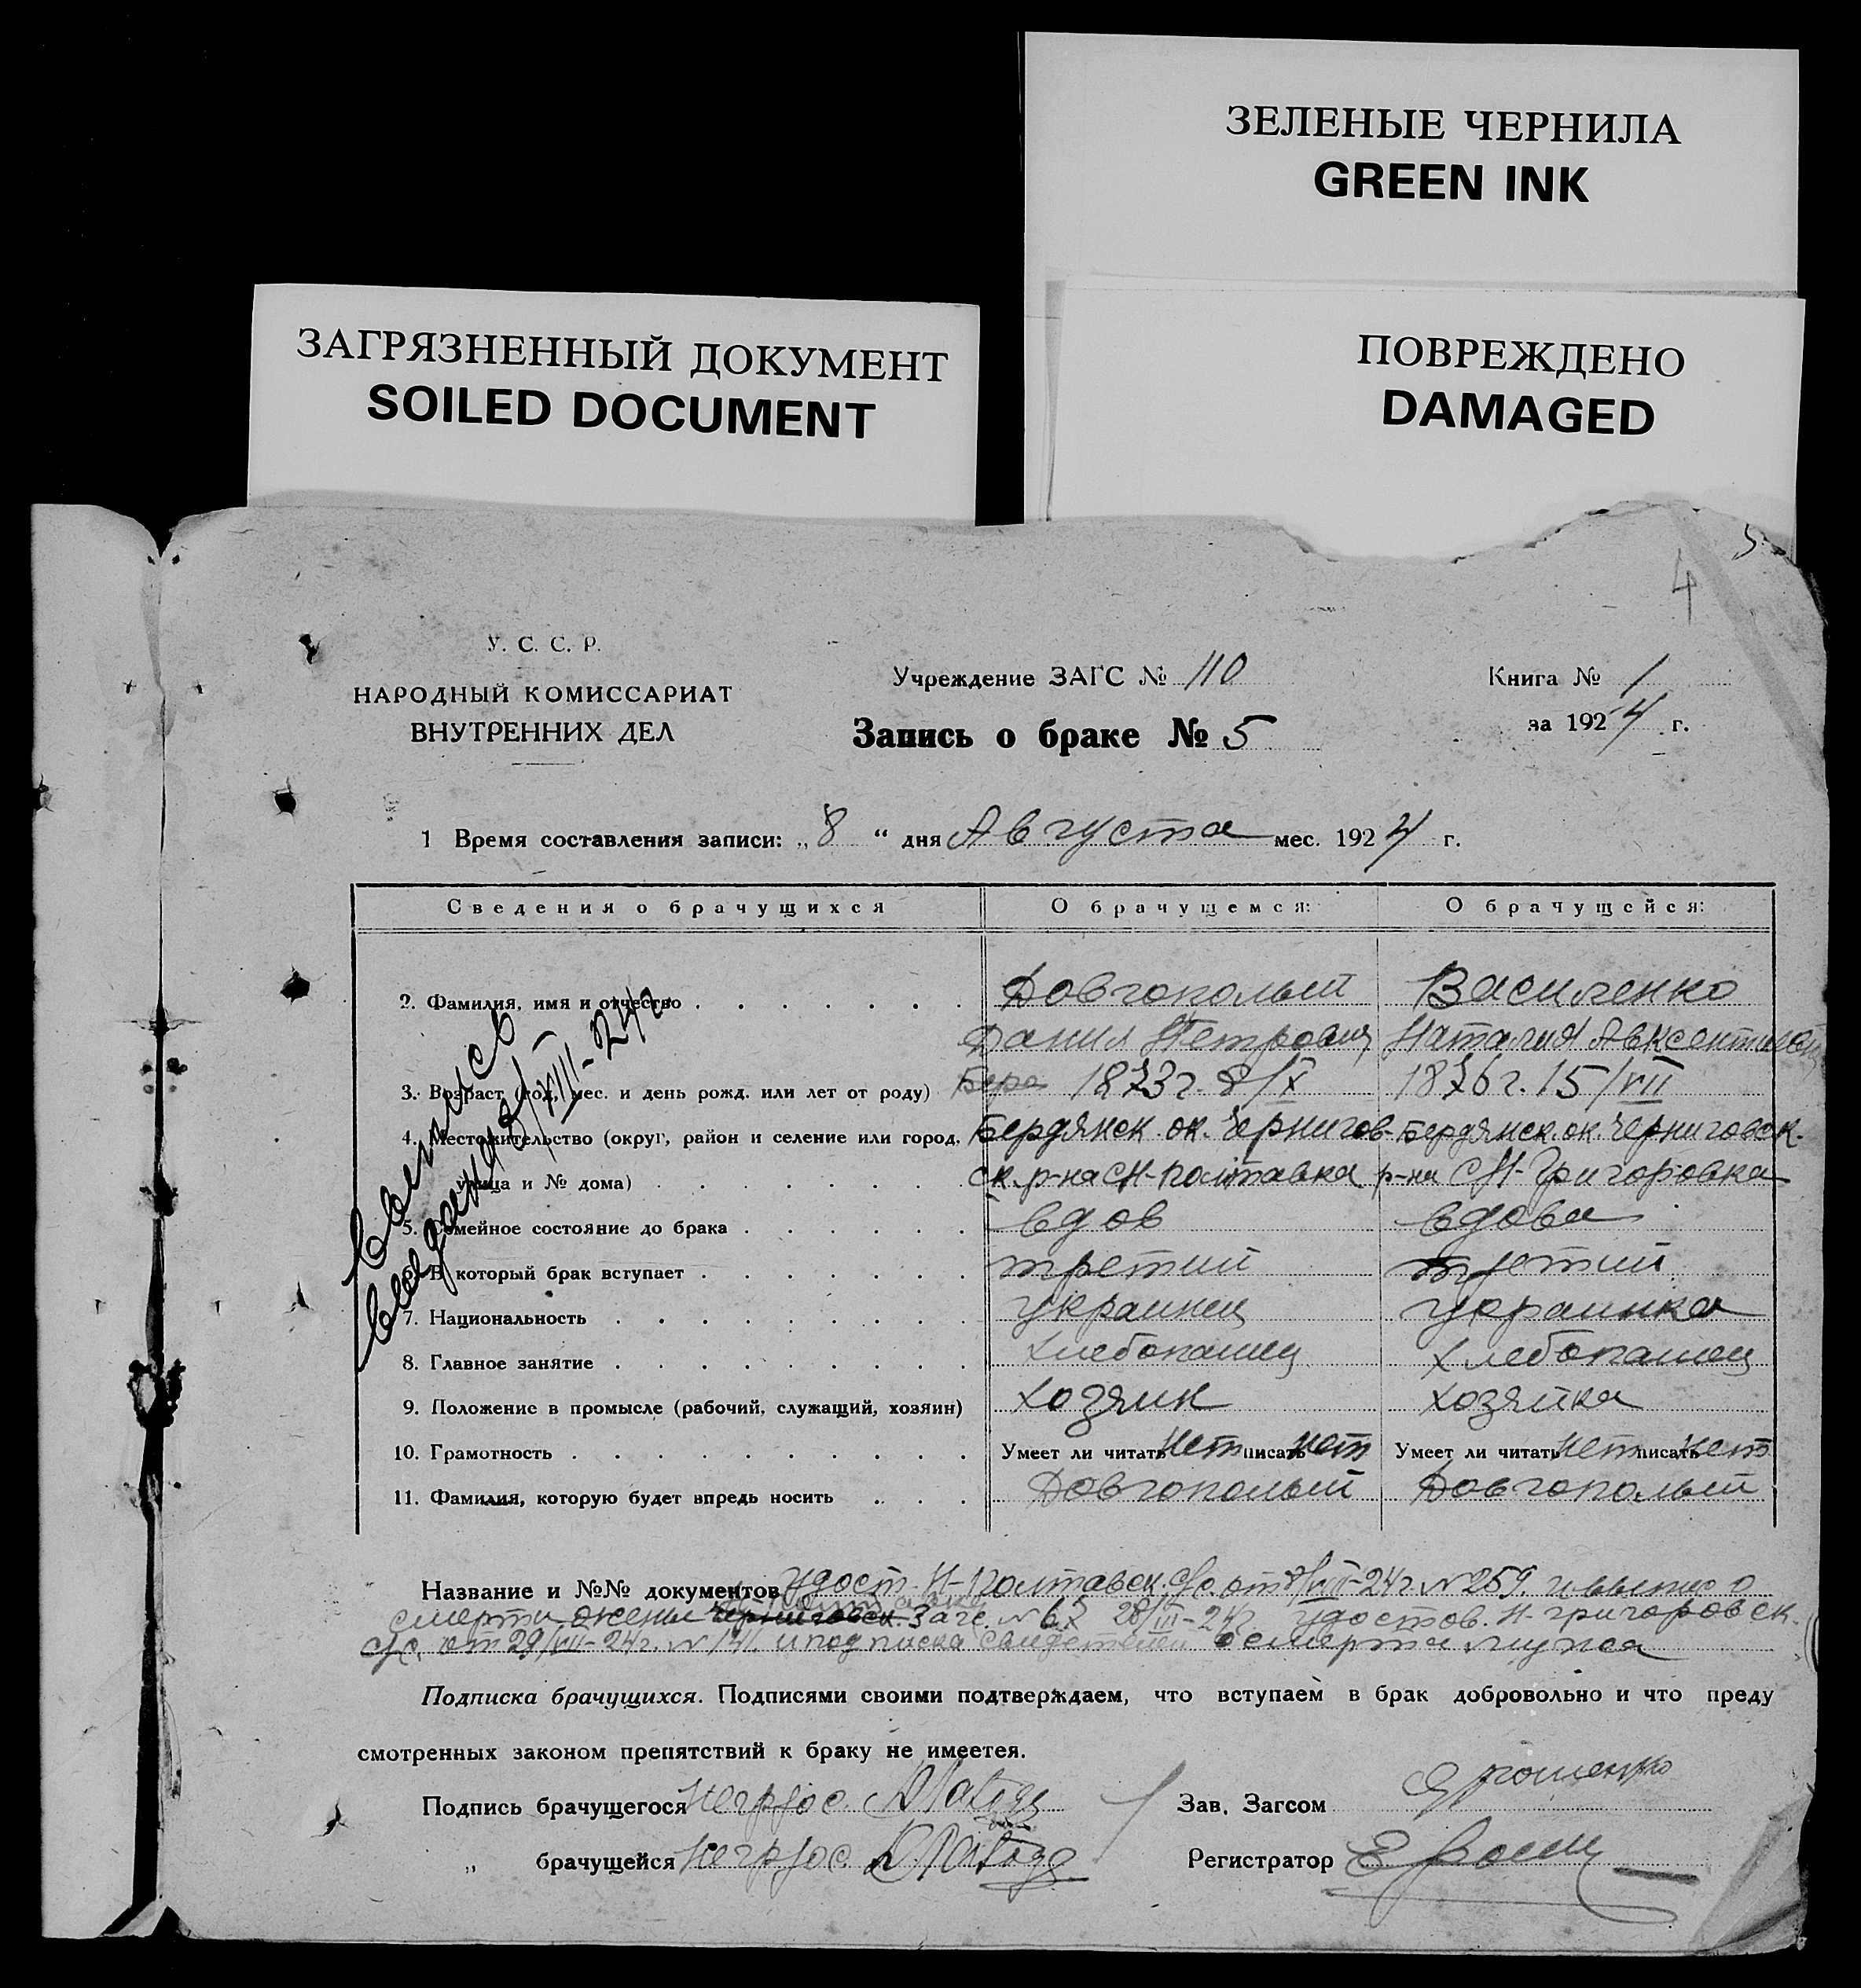 ЗЕЛЕНЫЕ ЧЕРНИЛА
GREEN INK
ЗАГРЯЗНЕННЫЙ ДОКУМЕНТ
SOILED DOCUMENT
ПОВРЕЖДЕНО
DAMAGED
5
4
У. С. С. Р.
НАРОДНЫЙ КОМИССАРИАТ
ВНУТРЕННИХ ДЕЛ
Учреждение ЗАГС № 110
Запись о браке № 5
Книга № 1
за 1924 г.
1 Время составления записи: „8“ дня Августа мес. 1924 г.
Сведения о брачущихся О брачущемся: О брачущейся:
2. Фамилия, имя и отчество Довгополый Василенко
Данил Петрович Наталия
3. Возраст (год, мес. и день рожд. или лет от роду) 1873 г. 8/X 1876 г. 15/VII
4. Местожительство (округ, район и селение или город, Бердянск. ок. Чернигов- Бердянск. ок. Черниговск.
улица и № дома) ск. р-на с Н-Полтавка р-на с Н-Григоровка
5. Семейное состояние до брака вдов вдова
6. В который брак вступает третий третий
7. Национальность украинец украинка
8. Главное занятие хлебопашец хлебопашец
9. Положение в промысле (рабочий, служащий, хозяин) хозяин хозяйка
10. Грамотность Умеет ли читать нет писать нет Умеет ли читать нет писать нет
11. Фамилия, которую будет впредь носить Довгополый Довгополый
Название и №№ документов удост. Н-Полтавск. с/с. от 8/VIII-24 г. № 259 и выпись о
смерти жены Черниговск. Загс. № 67 28/III-24 г. удостов. Н-Григоровск.
с/с. от 29/VII-24 г. и подписка свидетелей о смерти мужа
Подписка брачущихся. Подписями своими подтверждаем, что вступаем в брак добровольно и что преду
смотренных законом препятствий к браку не имеется.
Подпись брачущегося негр. Зав. Загсом
„ брачущейся негр. Регистратор